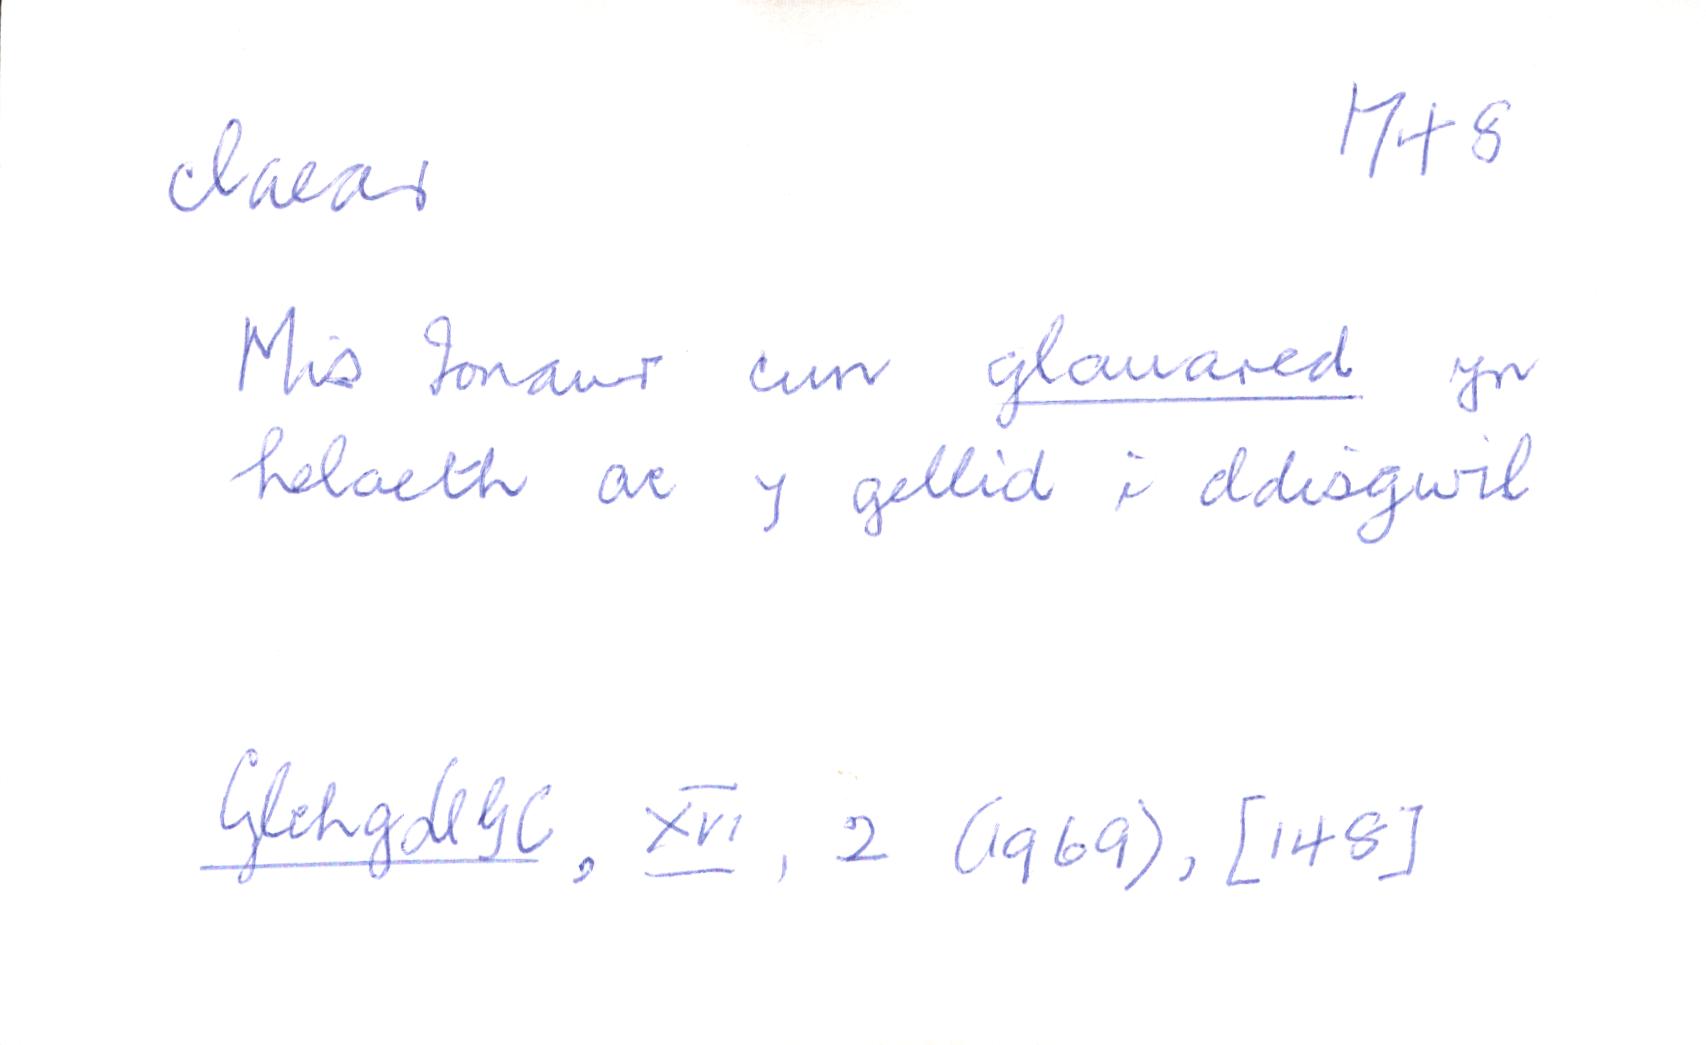 claear
1748
Mis Ionawr cun glauared yn
helaeth ac y gellid i ddisgwil
CylchgLlGC, XVI, 2 (1969), [148]